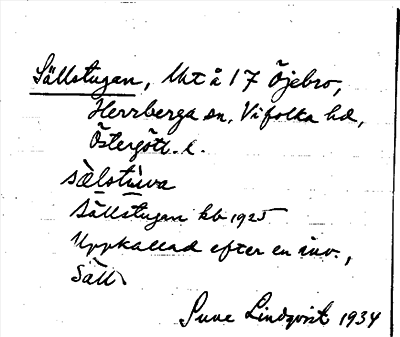 Sällstugan, Ukt å 17 Öjebro,
Herrberga sn, Vifolka hd,
Östergötl. l.
sä̀lstùwa
Sällstugan kb 1925
Uppkallad efter en inv.,
Säll
Sune Lindqvist 1934